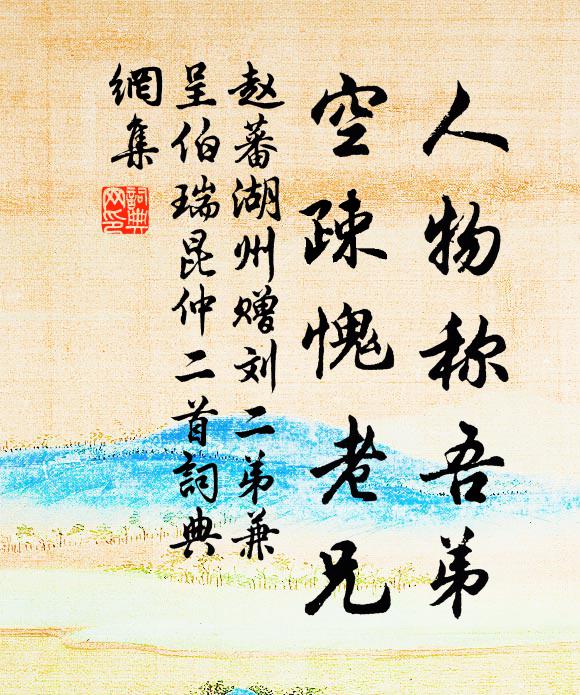 人物称吾弟
空疎愧老兄
赵蕃湖州赠刘二弟兼
呈伯瑞昆仲二首詞典
網集
詞典
网印